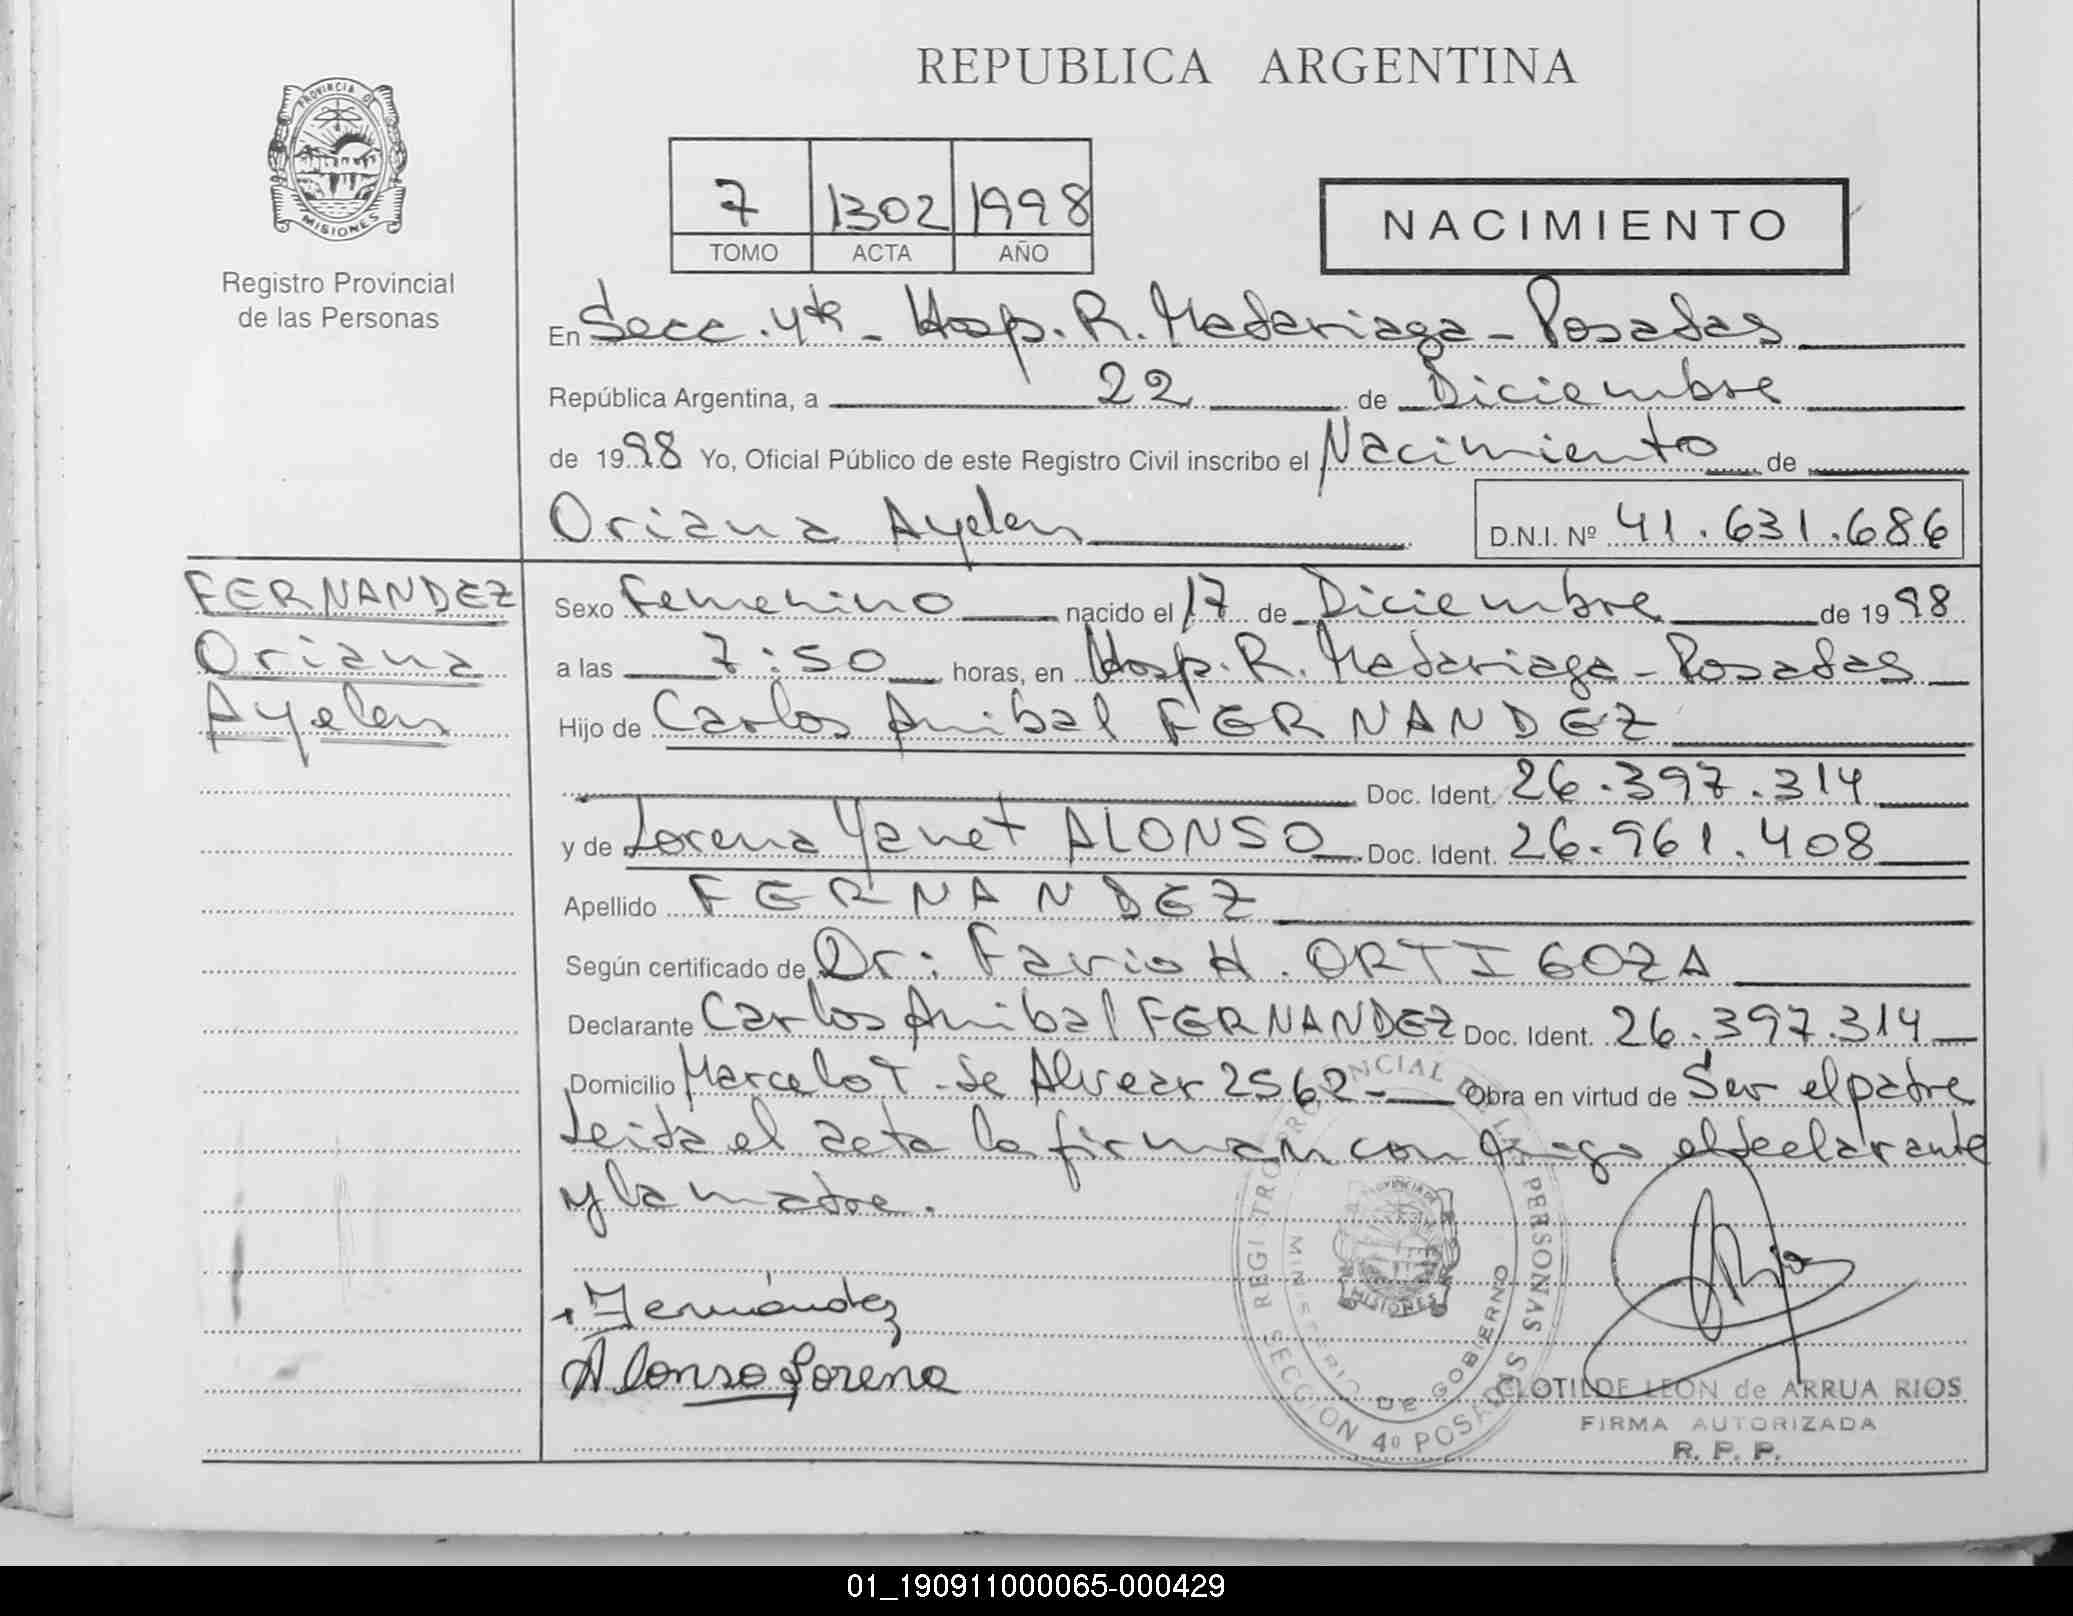 REPUBLICA ARGENTINA
PROVINCIA DE
MISIONES
Registro Provincial
de las Personas
7 1302 1998
TOMO ACTA AÑO
NACIMIENTO
En Secc. 4ta - Hosp. R. Madariaga - Posadas
República Argentina, a 22 de Diciembre
de 1998 Yo, Oficial Público de este Registro Civil inscribo el Nacimiento de
Oriana Ayelen D.N.I. Nº 41.631.686
FERNANDEZ
Oriana
Ayelen
Sexo Femenino nacido el 17 de Diciembre de 1998
a las 7:50 horas, en Hosp. R. Madariaga - Posadas
Hijo de Carlos Anibal FERNANDEZ
Doc. Ident. 26.397.314
y de Lorena Yanet ALONSO Doc. Ident. 26.961.408
Apellido FERNANDEZ
Según certificado de Dr: Favio H. ORTIGOZA
Declarante Carlos Anibal FERNANDEZ Doc. Ident. 26.397.314
Domicilio Marcelo T. de Alvear 2562 - Obra en virtud de Ser el padre
Leida el acta la firman con migo el declarante
y la madre.
Fernández
Alonso Lorena
REGISTRO PROVINCIAL DE LAS PERSONAS
MINISTERIO DE GOBIERNO
PROVINCIA DE
MISIONES
SECCION 4º POSADAS
CLOTILDE LEON de ARRUA RIOS
FIRMA AUTORIZADA
R. P. P.
01_190911000065-000429